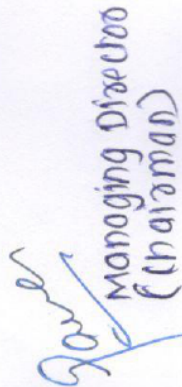 Managing Director
(Chairman)